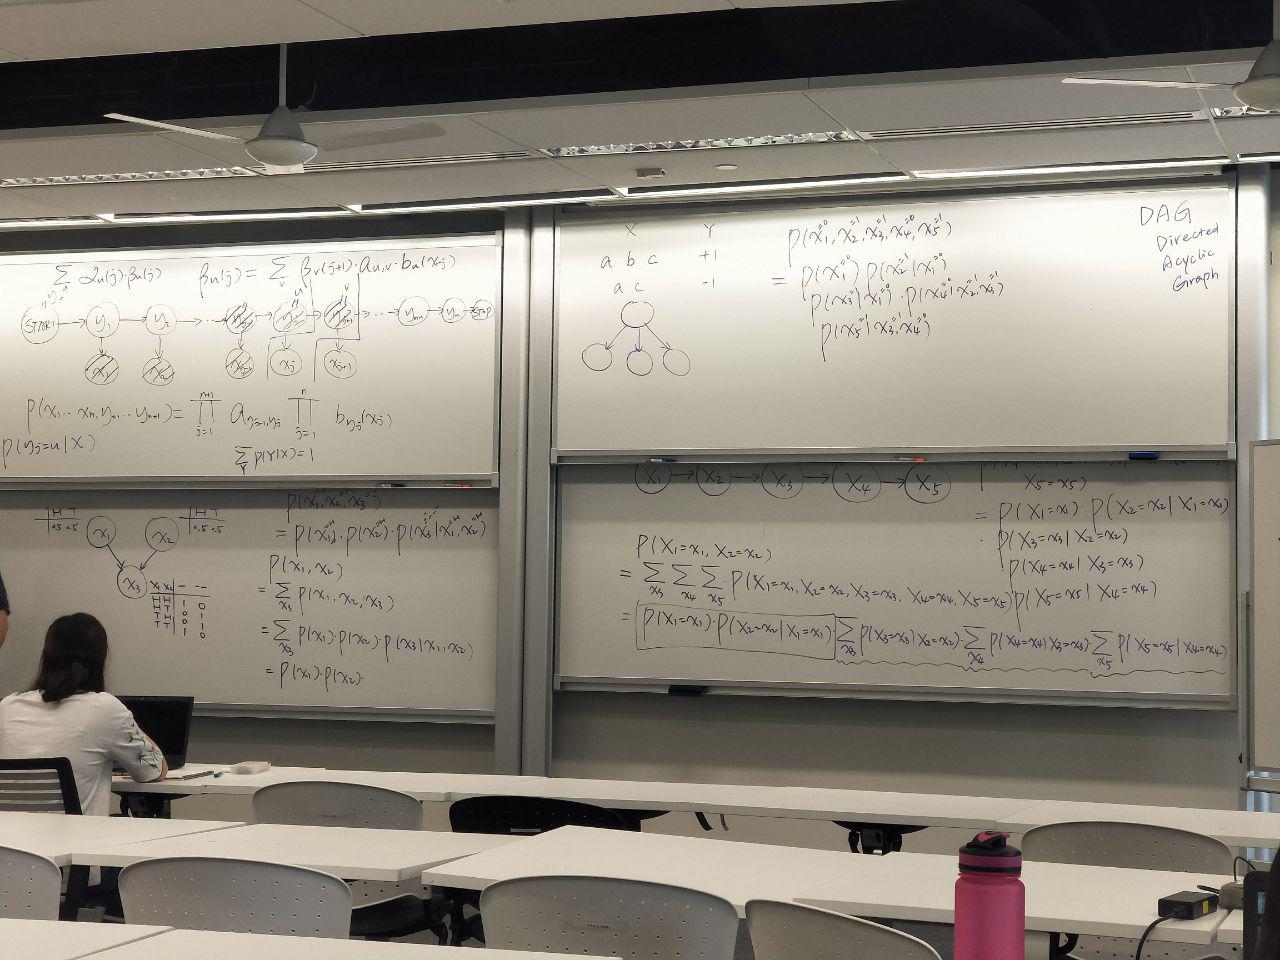 ∑ αu(j)·βu(j)
βu(j) = ∑v βv(j+1)·au,v·bu(xj)
START y1 y2 ... yj-1 u v ... yn STOP
x1 x2 xj-1 xj xj+1
p(x1...xn, y1...yn+1) = ∏ j=1 n+1 ayj-1,yj ∏ j=1 n byj(xj)
p(yj=u|X)
∑Y p(Y|X)=1
H T
0.5 0.5
x1 x2
H T
0.5 0.5
x3
x1 x2
HH 1 0
HT 0 1
TH 0 1
TT 1 0
p(x1, x2, x3)
= p(x1)·p(x2)·p(x3|x1,x2)
p(x1, x2)
= ∑x3 p(x1, x2, x3)
= ∑x3 p(x1)·p(x2)·p(x3|x1,x2)
= p(x1)·p(x2).
X Y
a b c +1
a c -1
p(x1=0, x2=1, x3=1, x4=0, x5=1)
= p(x1=0) p(x2=1|x1=0)
p(x3=1|x1=0)·p(x4=0|x2=1,x3=1)
p(x5=1|x3=1,x4=0)
DAG
Directed
Acyclic
Graph
X1 X2 X3 X4 X5
X5=x5)
= p(X1=x1)·p(X2=x2|X1=x1)
· p(X3=x3|X2=x2)
p(X4=x4|X3=x3)
p(X5=x5|X4=x4)
p(X1=x1, X2=x2)
= ∑x3 ∑x4 ∑x5 p(X1=x1, X2=x2, X3=x3, X4=x4, X5=x5)
= p(X1=x1)·p(X2=x2|X1=x1) ∑x3 p(X3=x3|X2=x2)·∑x4 p(X4=x4|X3=x3)·∑x5 p(X5=x5|X4=x4)